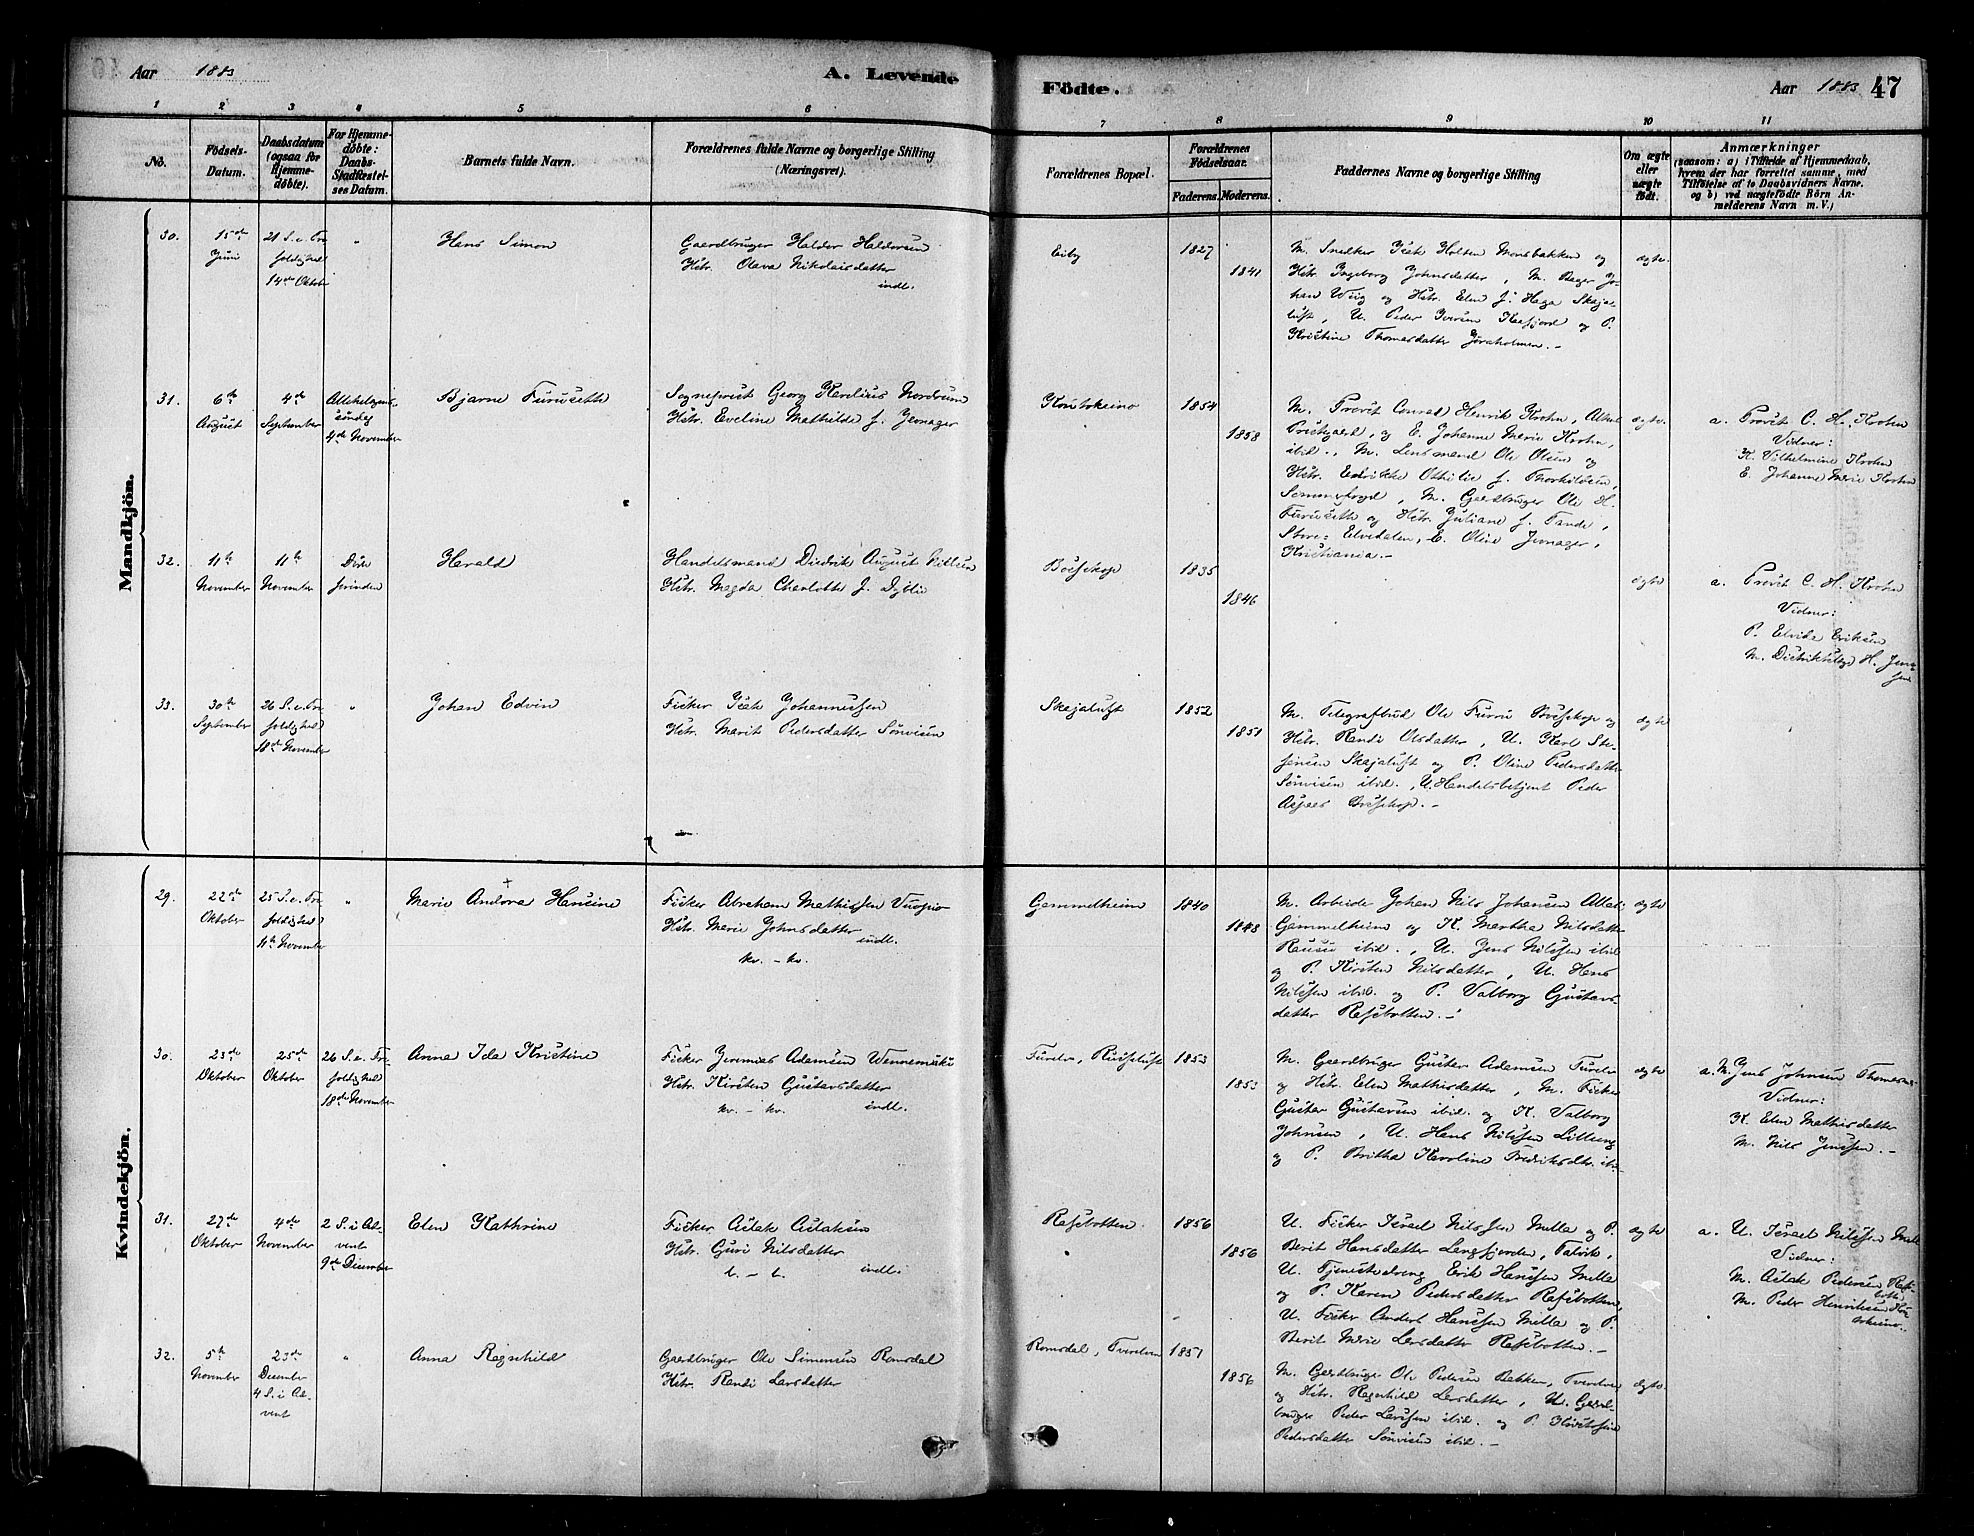 Aar 1883
A. Levende
Födte.
Aar 1883
47
1 2 3 4 5 6 7 8 9 10 11
No.
Födsels-
Datum.
Daabsdatum
(ogsaa for
Hjemme-
döbte).
For Hjemme-
döbte:
Daabs-
Stadfæstel-
ses Datum.
Barnets fulde Navn.
Forældrenes fulde Navne og borgerlige Stilling
(Næringsvei).
Forældrenes Bopæl.
Forældrenes
Födselsaar.
Faderens. Moderens.
Faddernes Navne og borgerlige Stilling
Om ægte
eller
uægte
födt.
Anmærkninger
(saasom: a) i Tilfælde af Hjemmedaab,
hvem der har forrettet samme, med
Tilföielse af to Daabsvidners Navne.
og b) ved uægtefödte Börn An-
melderens Navn m. V.)
Mandkjön.
30.
15de
Juni
21 S. e. Tre
foldighed
14de Oktober
"
Hans Simon
Gaardbruger Halder Haldersen
Hstr. Olava Nikolaisdatter
indl.
Eiby
1827
1841
M. Snedker Isak Holten Monsbakken og
Hstr. Ingeborg Johnsdatter, M. Bager Jo-
han Wiig og Hstr. Elen J. Haga Skaja-
luft, U. Peder Iversen Kaafjord og P.
Kristine Thomasdatter Jøraholmen.-
ægte
31.
6te
August
4de
September
Allehelgens-
søndag
4de November
Bjarne Furuseth
Sogneprest Georg Karelius Nordrum
Hstr. Eveline Mathilde f. Jernager
Koutokeino
1854
1858
M. Provst Conrad Henrik Krohn, Alten
Prestgaard, og E. Johanne Marie Krohn,
ibid., M. Lensmand Ole Olsen og
Hstr. Edrikke Othilie f. Thorkildsen,
M. Gaardbruger Ole H.
Furuseth og Hstr. Juliane f. Tande,
Store-Elvedalen, E. Oline Jernager,
Kristiania.-
ægte
a. Provst C. H. Krohn
Vidner:
K. Vilhelmine Krohn
E. Johanne Marie Krohn
32.
11te
November
11te
November
Døde
forinden
Harald
Handelsmand Diedrik August Nielsen
Hstr. Magda Charlotte f. Dybli
Bosekop
1835
1846
ægte
a. Provst C. H. Krohn
Vidner:
P. Elvida Eriksen
M. H. Jens-
sen
33.
30te
September
26 S. e. Tre
foldighed
18de November
"
Johan Edvin
Fisker Isak Johannessen
Hstr. Marit Pedersdatter Sønvisen
Skajaluft
1852
1851
M. Telegrafbud Ole Furru Bosekop og
Hstr. Randi Olsdatter, U. Karl Ste-
fensen Skajaluft og P. Oline Pedersdatter
Sønvisen ibid., U. Handelsbetjent Peder
Aspaas Bosekop.-
ægte
Kvindekjön.
29.
22de
Oktober
25 S. e. Tre
foldighed
11te November
"
Marie Andora Hansine
Fisker Abraham Mathissen Vuopio
Hstr. Marie Johnsdatter
indl.
kv. - kv.
Gammelheim
1840
1843
M. Arbeide Johan Nils Johansen Alta-
Gammelheim og K. Martha Nilsdatter
ibid., U. Jens Nilssen ibid
og P. Kirsten Nilsdatter, U. Hans
Nilssen ibid. og P. Valborg Gustavs-
datter Rafsbotten.-
ægte
30.
23de
Oktober
25de
Oktober
26 S. e. Tre-
foldighed
18de November
Anna Ida Kristine
Fisker Jeremias Adamsen Wennemäki
Hstr. Kirsten Gustavsdatter
kv. - kv.
indl.
Tverelv, Russeluft
1853
1853
M. Gaardbruger Gustav Adamsen Tverelv
og Hstr. Elen Mathisdatter, M. Fisker
Gustav Gustavsen ibid. og K. Valborg
Johnsen, U. Hans Nilssen Lilleng
og P. Britha Karoline Fredriksdtr. ibid.
ægte
a. M. Jens Johnsen Thomasnes
Vidner:
K. Elen Mathisdatter
M. Nils Jenssen.-
31.
27de
Oktober
4de
November
2 S. i Ad-
vent
9de December
Elen Kathrine
Fisker Aslak Aslaksen
Hstr. Guri Nilsdatter
l. - l.
indl.
Rafsbotten
1856
1856
U. Fisker Israel Nilssen Mella og P.
Berit Hansdatter Langfjorden, Talvik,
U. Tjenestedreng Erik Hanssen Mella
og P. Karen Pedersdatter Rafsbotten,
U. Fisker Anders Hanssen Mella og P.
Berit Marie Larsdatter Rafsbotten.-
ægte
a. U. Israel Nilssen Mella
Vidner:
M. Aslak Pedersen Rafs-
botten
M. Peder Henriksen Kou-
tokeino.
32.
5te
November
23de
December
4 S. i Ad-
vent
"
Anna Ragnhild
Gaardbruger Ole Simensen Romsdal
Hstr. Randi Larsdatter
Romsdal, Tverelven
1851
1856
M. Gaardbruger Ole Pedersen Bakken, Tverelven
og Hstr. Ragnhild Larsdatter, U. Gaard-
bruger Peder Larssen ibid. og P.
Pedersdatter Sønvisen ibid.-
ægte